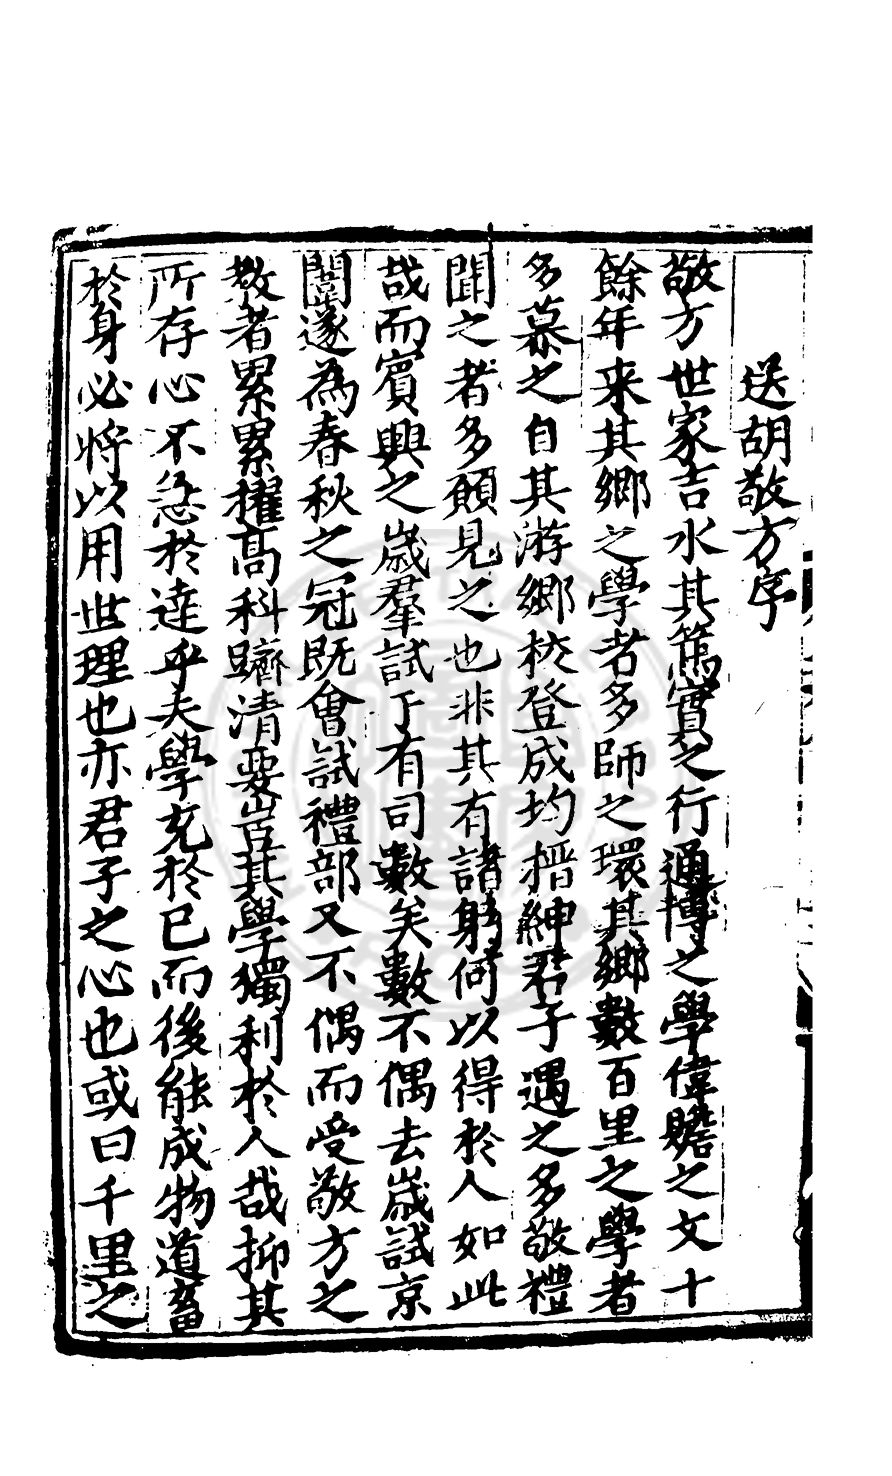 送胡敬方序
敬方世家吉水其篤實之行通博之學偉贍之文十
餘年来其鄉之學者多師之環其鄉數百里之學者
多慕之自其游鄉校登成均搢紳君子遇之多敬禮
聞之者多願見之也非其有諸躬何以得於人如此
哉而賓興之歲羣試于有司數矣數不偶去歲試京
闈遂為春秋之冠既會試禮部又不偶而受敬方之
教者累累擢高科躋清要豈其學獨利於人哉抑其
所存心不急於達乎夫學充於己而後能成物道畜
於身必將以用世理也亦君子之心也或曰千里之